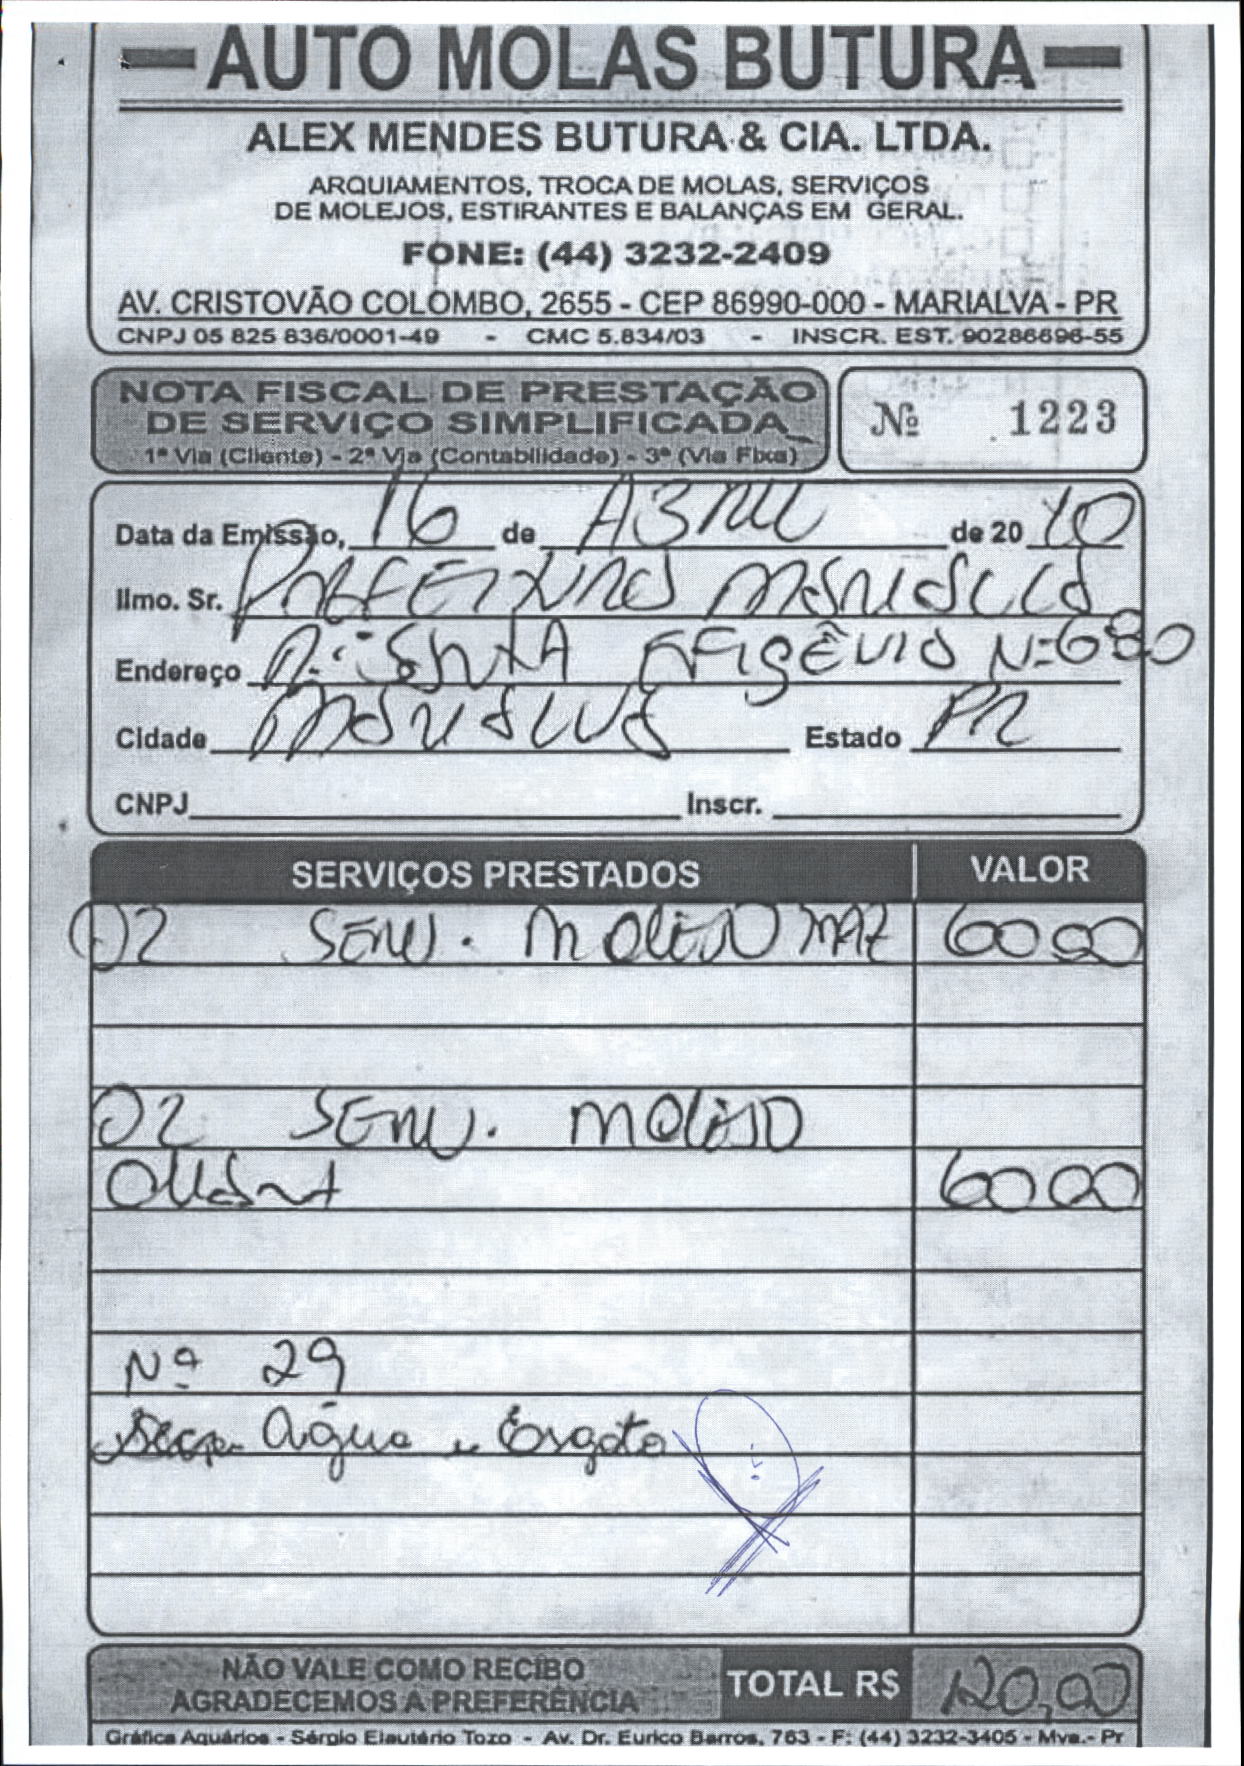 AUTO MOLAS BUTURA
ALEX MENDES BUTURA & CIA. LTDA.
ARQUIAMENTOS, TROCA DE MOLAS, SERVIÇOS
DE MOLEJOS, ESTIRANTES E BALANÇAS EM GERAL.
FONE: (44) 3232-2409
AV. CRISTOVÃO COLOMBO, 2655 - CEP 86990-000 - MARIALVA - PR
CNPJ 05 825 836/0001-49 - CMC 5.834/03 - INSCR. EST. 90286696-55
NOTA FISCAL DE PRESTAÇÃO
DE SERVIÇO SIMPLIFICADA
1ª Via (Cliente) - 2ª Via (Contabilidade) - 3ª (Via Fixa)
Nº 1223
Data da Emissão, 16 de ABRIL de 20 10
Ilmo. Sr. PREFEITURA MARIALVA
Endereço R: SANTA EFIGÊNIA N=680
Cidade MARIALVA Estado PR
CNPJ Inscr.
SERVIÇOS PRESTADOS VALOR
02 SERV. MOLEJO 6000
02 SERV. MOLEJO
6000
Nº 29
Água e Esgoto
NÃO VALE COMO RECIBO
AGRADECEMOS A PREFERÊNCIA
TOTAL R$ 120,00
Gráfica Aquários - Sérgio Elautério Tozo - Av. Dr. Eurico Barros, 763 - F: (44) 3232-3405 - Mva.- Pr